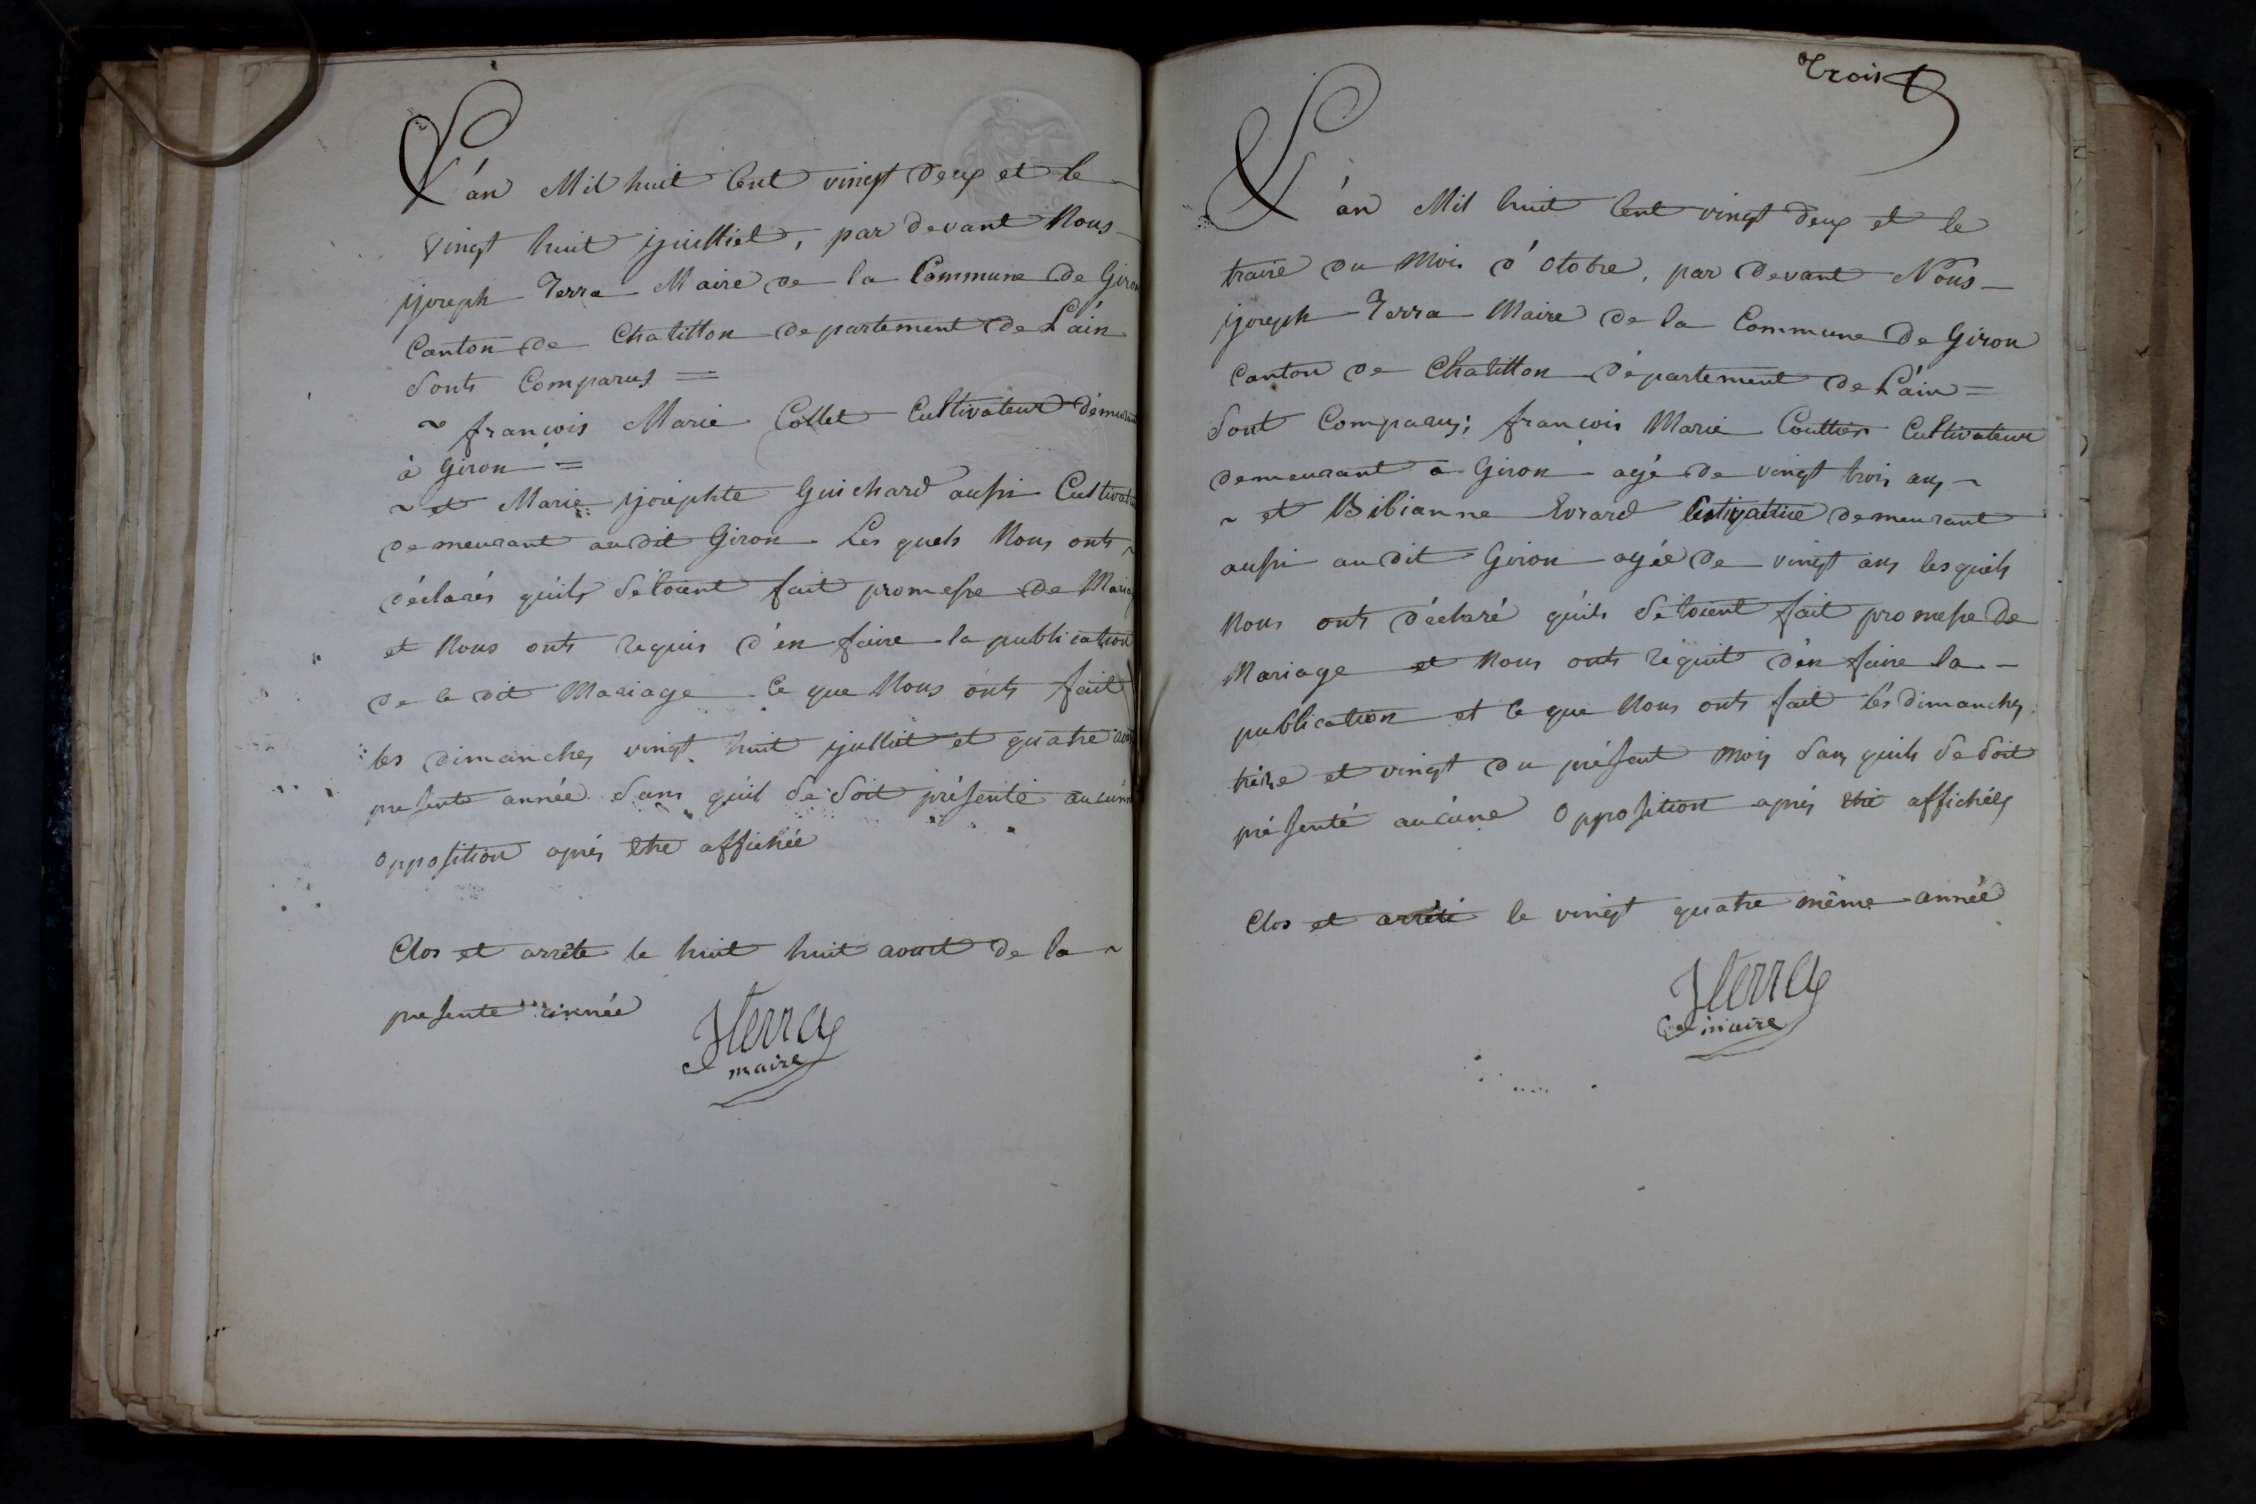 L'án Mil huit Cent vingt deux et le
vingt huit juilliet, par devant Nous
joseph Terra Maire de la Commune de Giron
Canton de Chatillon departement de L'áin
Sonts Comparus =
~ françois Marie Collet Cultivateur démeurant
à Giron =
~ et Marie josephte Guichard aussi Cultivatrice
demeurant audit Giron Les quels Nous onts
déclarés quils Sétoient fait promesse de Mariage
et Nous onts requis d'en faire la publication
de le dit Mariage Ce que Nous onts fait
les dimanches vingt huit julliet et quatre aout
presente année Sans quil Se Soit présenté aucúne
Opposition aprés Etre affichée
Clos et arrête le huit huit aoust de la
presente année
JTerra
maire
Trois
L'án Mil huit Cent vingt deux et le
traire du Mois d'Otobre, par devant Nous
joseph Terra Maire de la Commune de Giron
Canton de Chatillon département de L'áin =
Sont Comparus; françois Marie Couttier Cultivateur
demeurant a Giron agé de vingt trois ans ~
~ et Bibianne Evrard demeurant
aussi audit Giron agée de vingt ans lesquels
Nous onts décharé quils Sétoient fait promesse de
Mariage et Nous onts réquit d'en faire la
publication et Ce que Nous onts fait Les dimanches
tréize et vingt du présent mois Sans quils Se Soit
présenté aucúne Opposition aprés Etre affichées
Clos et arrété le vingt quatre même année
JTerra
maire